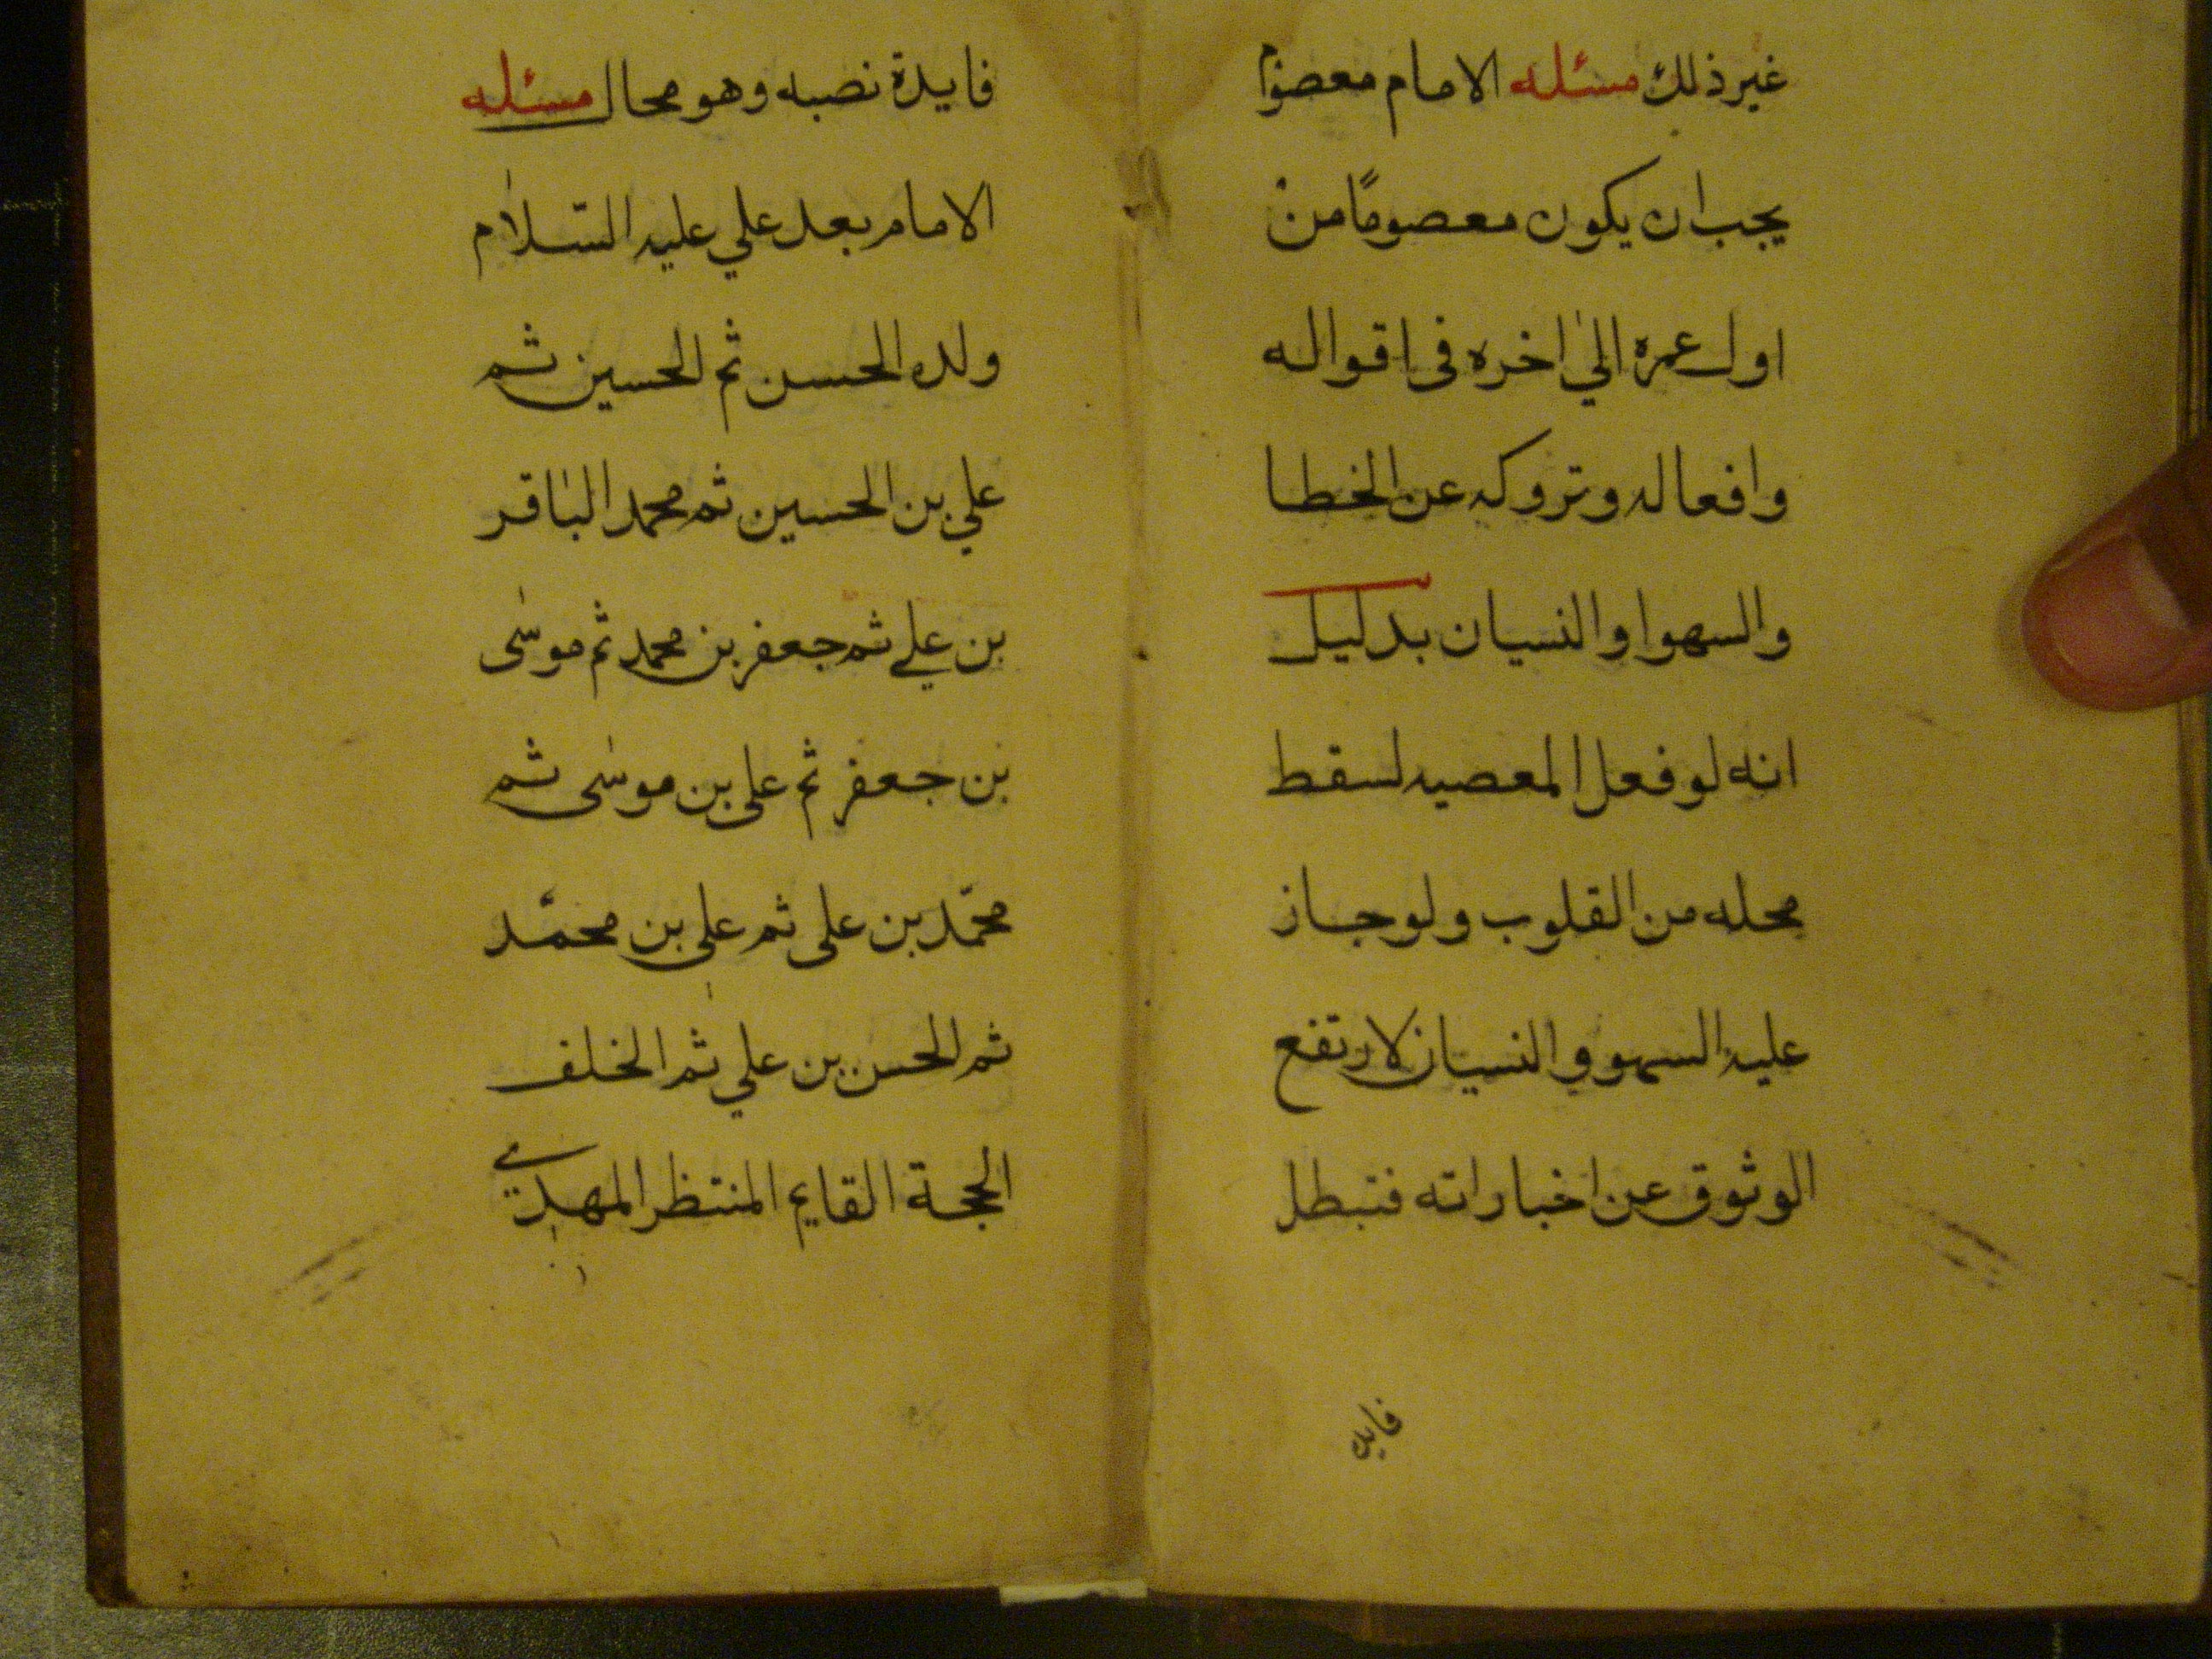 غير ذلك مسئله الامام معصوم
يجب ان يكون معصومًا من
اول عمره الىٰ اخره فى اقواله
وافعاله وتروكه عن الخطا
والسهوا والنسيان بدليل
انه لو فعل المعصيه لسقط
محله من القلوب ولو جاز
عليه السهو والنسيان لارتفع
الوثوق عن اخباراته فتبطل
فايد
فايدة نصبه وهو محال مسئله
الامام بعد علي عليه السّلام
ولده الحسن ثم الحسين ثم
علي بن الحسين ثم محمد الباقر
بن علي ثم جعفر بن محمد ثم موسىٰ
بن جعفر ثم على بن موسىٰ ثم
محمّد بن على ثم علي بن محمّد
ثم الحسن بن علي ثم الخلف
الحجة القايم المنتظر المهدي